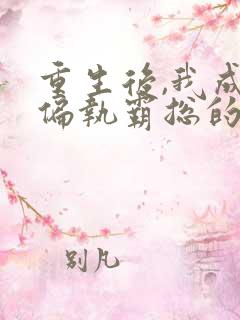 重生後,我成
偏執霸總的
別凡